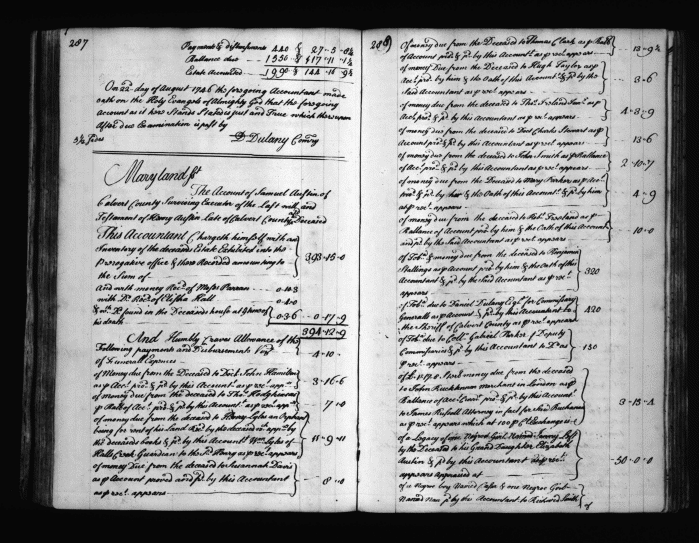 287
Payments & disbursements 440 27-5-8½
Ballance due 1550 117-11-1¼
Estate Accounted 1990 144-16-9¼
On 22d day of August 1746 the foregoing Accountant made
oath on the Holy Evangels of Almighty God that the foregoing
account as it now Stands Stated is just and True which thereupon
After due Examination is past by
D Dulany Comry
Maryland ss
The Account of Samuel Austin of
Calvert County Surviving Executor of the Last will and
Testament of Henry Austin Late of Calvert County Deceased
This Accountant Chargeth himself with an
Inventory of the deceaseds Estate Exhibited into the
Prerogative office & there Recorded amounting to
the Sum of 393-15-0
And with money Recd. of Moses Parran 0-10-3
with Do. Recd. of Elisha Hall 0-4-0
& wth. Do. found in the Deceaseds house at time of
his death 0-3-6 0-17-9
394-12-9
And Humbly Craves Allowance of the
Following payments and Disbursements Vizt.
of Funerall Expences 4-10-
of Money due from the Deceased to Doctr. John Hamilton
as p Acct. provd. & pd. by this Accountt. as p rect. appears 3-16-6
of money due from the deceased to Thos.
p Ball. of Acct. provd. & pd. by this Accountt. as p rect. appears 7-0
of money due from the deceased to Henry Lyles an Orphan
being for rent of his Land Recd. by the deceased as appears by
the deceaseds books & pd. by this Accountt. Wm. Lyles of
Halls Creek Guardian to the sd. Henry as p rect. appears 11-9-11
of money Due from the deceased to Susannah Davis
as p Account proved and pd. by this Accountant
as p rect. appears 8-0
288
Of money due from the Deceased to Thomas Clark as p Ball.
of Account provd. & pd. by this Accountt. as p rect. appears 13-9¼
of money Due from the Deceased to Hugh Taylor as p
Acct. provd. by him & the Oath of this Accountt. & pd. by the
Said Accountant as p rect. appears 3-6
of money due from the deceased to Thos. Ireland Junr. as p
Acct. provd. & pd. by this Accountant as p rect. appears 4-8-9
of money due from the deceased to Doctr. Charles Stewart as p
Account provd. & pd. by this Accountant as p rect. appears 13-6
of money due from the deceased to John Smith as p Ballance
of Acct. provd. & pd. by this Accountant as p rect. appears 2-10-7
of money due from the Deceased to Mary Parker as p Acct.
provd. by her & the Oath of this Accountt. & pd. by him
as p rect. appears 4-9
of money due from the deceased to Robt. Freeland as p
Ballance of Account provd. by him & the Oath of this Accountt.
and pd. by the Said Accountant as p rect. appears 10-0
of Tobo. & money due from the deceased to Benjamin
Stallings as p Account provd. by him & the Oath of this
Accountant & pd. by the Said Accountant as p rect.
appears 320
of Tobo. due to Daniel Dulany Esqr. for Commissary
Generalls as p Account & pd. by this Accountant to
the Sheriff of Calvert County as p rect. appears 420
of Tobo. due to Collo. Gabriel Parker p Deputy
Commissarys & pd. by this Accountant to Do. as
p rect. appears 130
Sterl. money due from the deceased
to John Buchanan merchant in London as p
Ballance of Acct. Currt. provd. & pd. by this Accountant
to James Russell Attorney in fact for said Buchanan
as p rect. appears which at 100 p Ct. Exchange is 3-15-4
of a Legacy of one Negroe Girl Named Left
by the Deceased to his Grand Daughter Elizabeth
Austin & pd. by this Accountant as p rect.
appears Appraised at 30-0-0
of a Negroe boy Named & one Negroe Girl
Named Nan pd. by this Accountant to Richard Smith